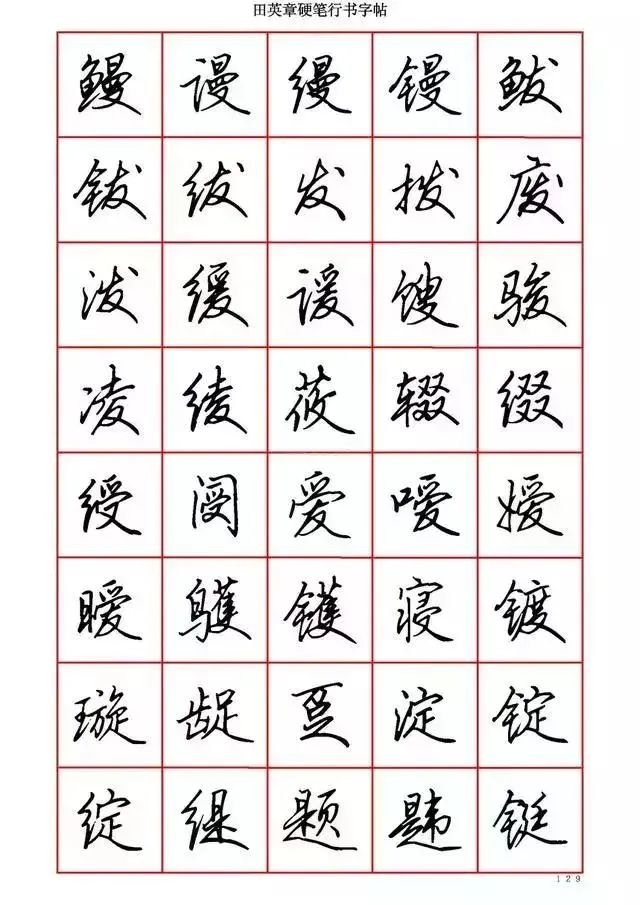 田英章硬笔行书字帖
鳗 谩 缦 镘 鲅
钹 绂 发 拨 废
泼 缓 谖 馊 骏
凌 绫 莜 辍 缀
绶 阌 爱 嗳 嫒
暧 鹱 镬 寝 镀
璇 龊 趸 淀 锭
绽 缇 题 韪 铤
129